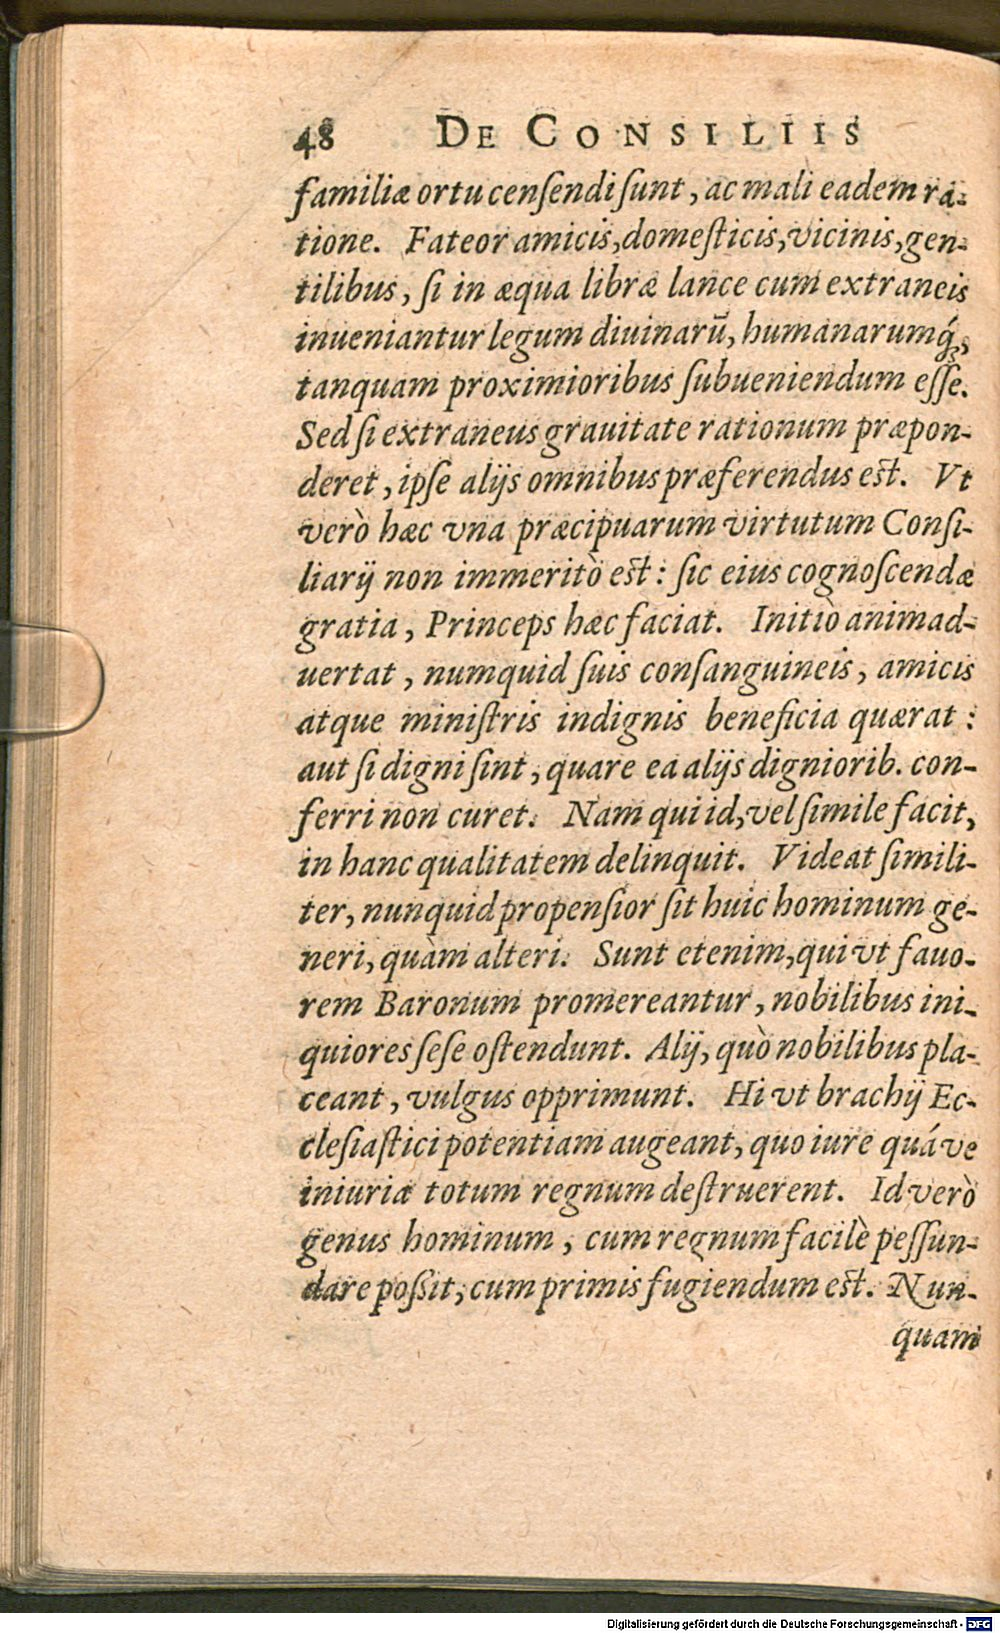 48 DE CONSILIIS
familiæ ortu cenſendi ſunt, ac mali eadem ra-
tione. Fateor amicis, domeſticis, vicinis, gen-
tilibus, ſi in æqua libræ lance cum extraneis
inueniantur legum diuinarū, humanarumq́;,
tanquam proximioribus ſubueniendum eſſe.
Sed ſi extraneus grauitate rationum præpon-
deret, ipſe alijs omnibus præferendus eſt. Vt
verò hæc vna præcipuarum virtutum Conſi-
liarij non immeritò eſt: ſic eius cognoſcendæ
gratia, Princeps hæc faciat. Initiò animad-
uertat, numquid ſuis conſanguineis, amicis
atque miniſtris indignis beneficia quærat:
aut ſi digni ſint, quare ea alijs digniorib. con-
ferri non curet. Nam qui id, vel ſimile facit,
in hanc qualitatem delinquit. Videat ſimili-
ter, nunquid propenſior ſit huic hominum ge-
neri, quàm alteri. Sunt etenim, qui vt fauo-
rem Baronum promereantur, nobilibus ini-
quiores ſeſe oſtendunt. Alij, quò nobilibus pla-
ceant, vulgus opprimunt. Hi vt brachij Ec-
cleſiaſtici potentiam augeant, quo iure quáve
iniuria totum regnum deſtruerent. Id verò
genus hominum, cum regnum facilè peſſun-
dare poßit, cum primis fugiendum eſt. Nun-
quam
Digitalisierung gefördert durch die Deutsche Forschungsgemeinschaft - DFG